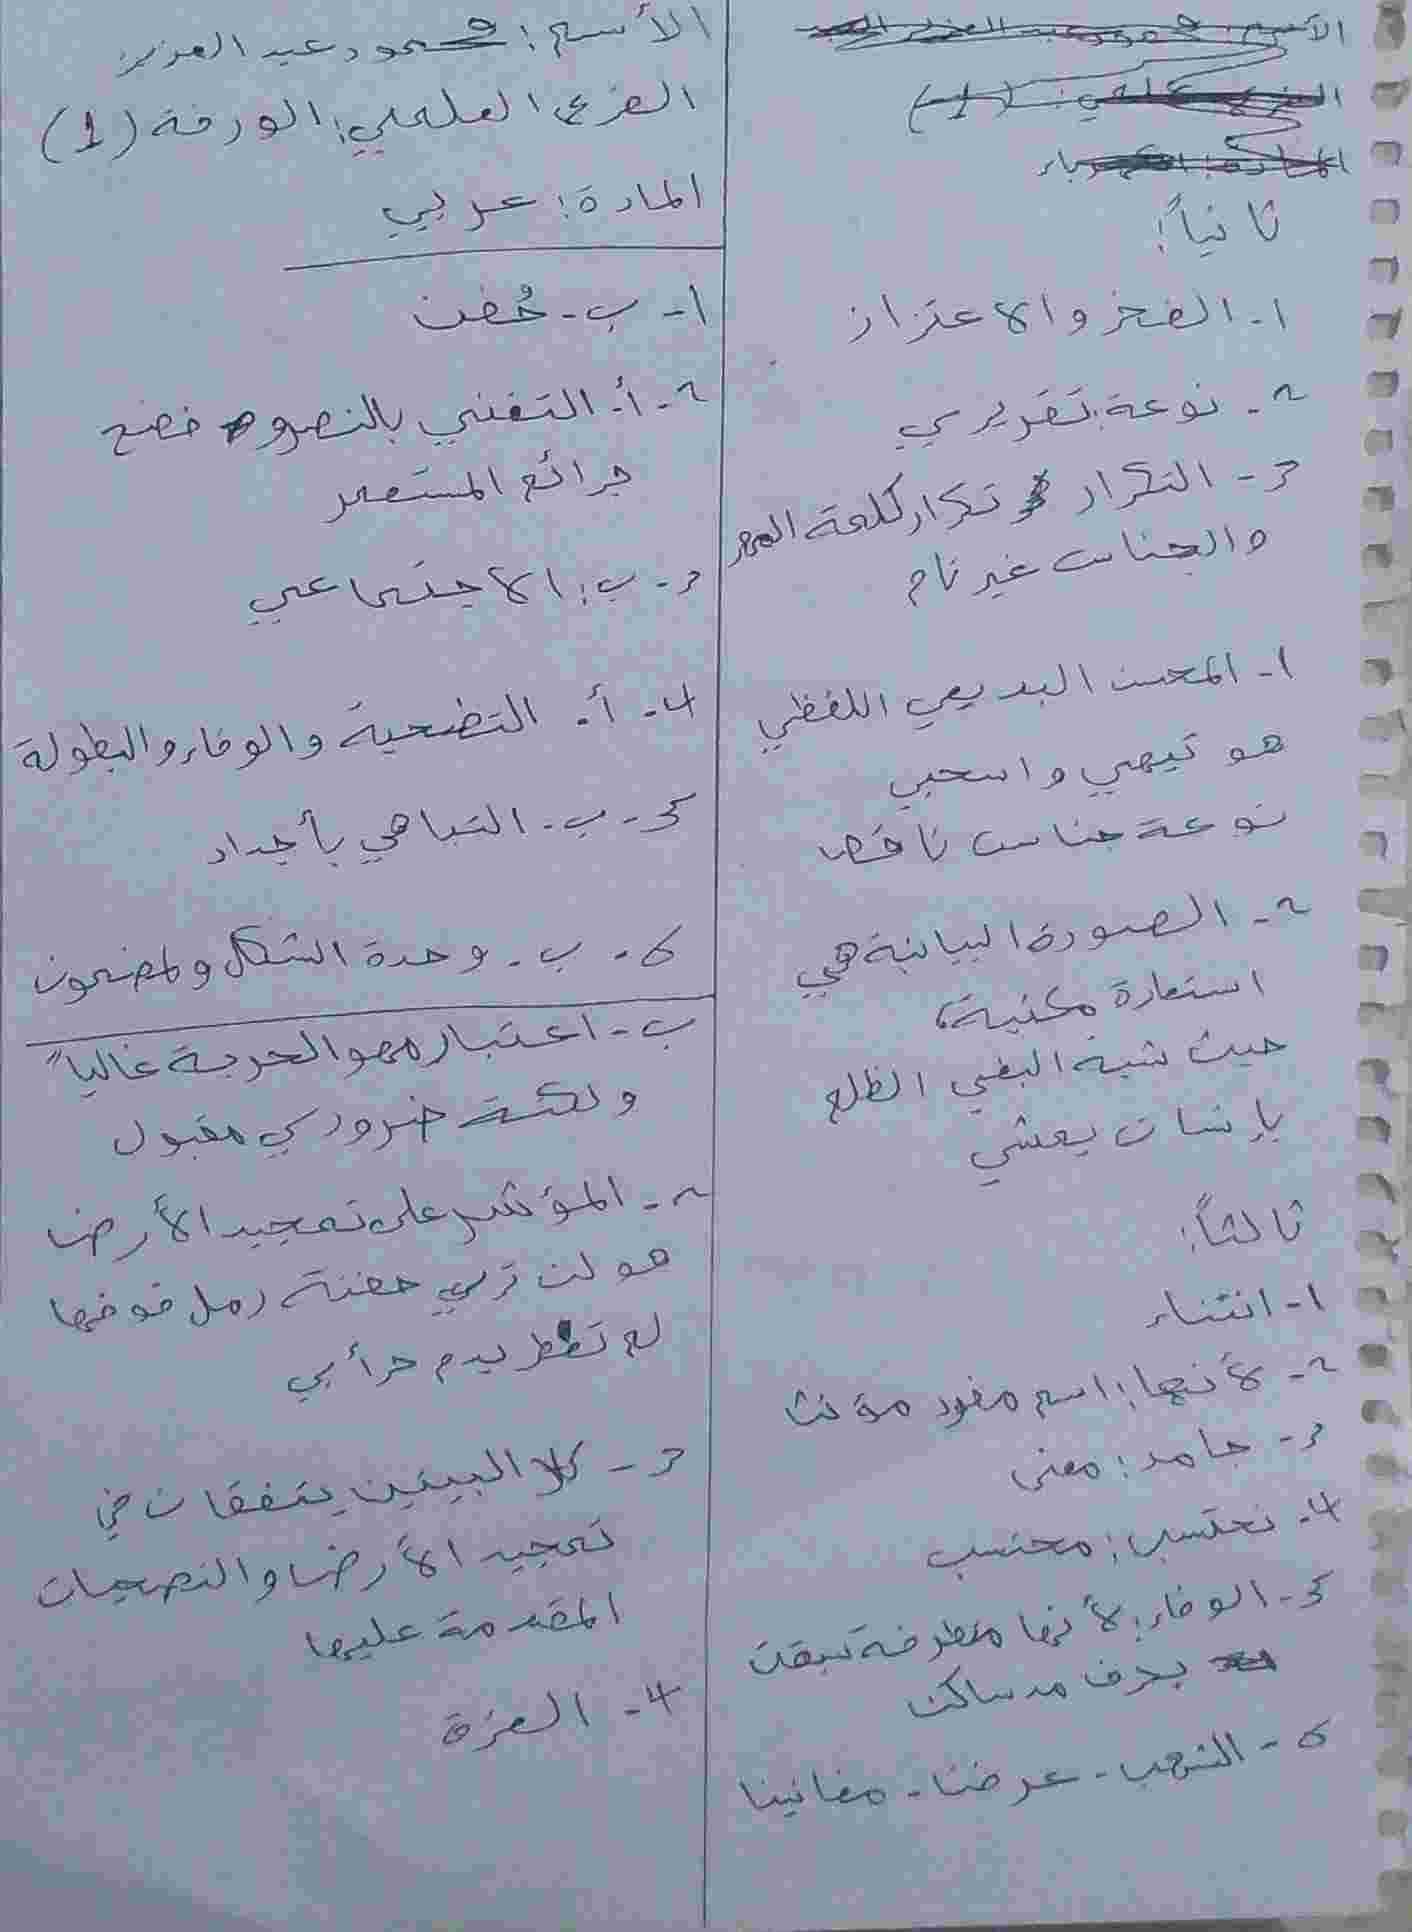 الأسم: محمود عبد العزيز
الفرع العلمي: الورقة (1)
المادة: عربي
١- ب- حُضن
٢- أ- التغني بالنصر و فضح
جرائم المستعمر
٣- ب: الاجتماعي
٤- أ- التضحية والوفاء والبطولة
٥- ب- التباهي بأجداد
٦- ب- وحدة الشكل ولمضمون
ب- اعتبار مهر الحرية غالياً
ولكنة ضروري مقبول
٢- المؤشر على تمجيد الأرض
هو لن تري حفنة رمل فوقها
لم تعطر بدم حرأبي
٣- كلا البيتين يتفقان في
تمجيد الأرض والتضحيات
المقدمة عليها
٤- العزة
ثانياً:
١- الفخر والاعتزاز
٢- نوعة: تقريري
٣- التكرار تكرار كلمة المهر
والجناس غير تام
١- المحسن البديعي اللفظي
هو تيهي واسحبي
نوعة جناس ناقص
٢- الصورة البيانية هي
استعارة مكنية،
حيث شبة البغي الظلم
بإنسان يمشي
ثالثاً:
١- انتشاء
٢- لأنها: اسم مفرد مؤنث
٣- جامد: معنى
٤- نحتسب: محتسب
٥- الوفاء: لأنها متطرفة سبقت
بحرف مد ساكن
٦- الشهب - عرضنا - مغانينا